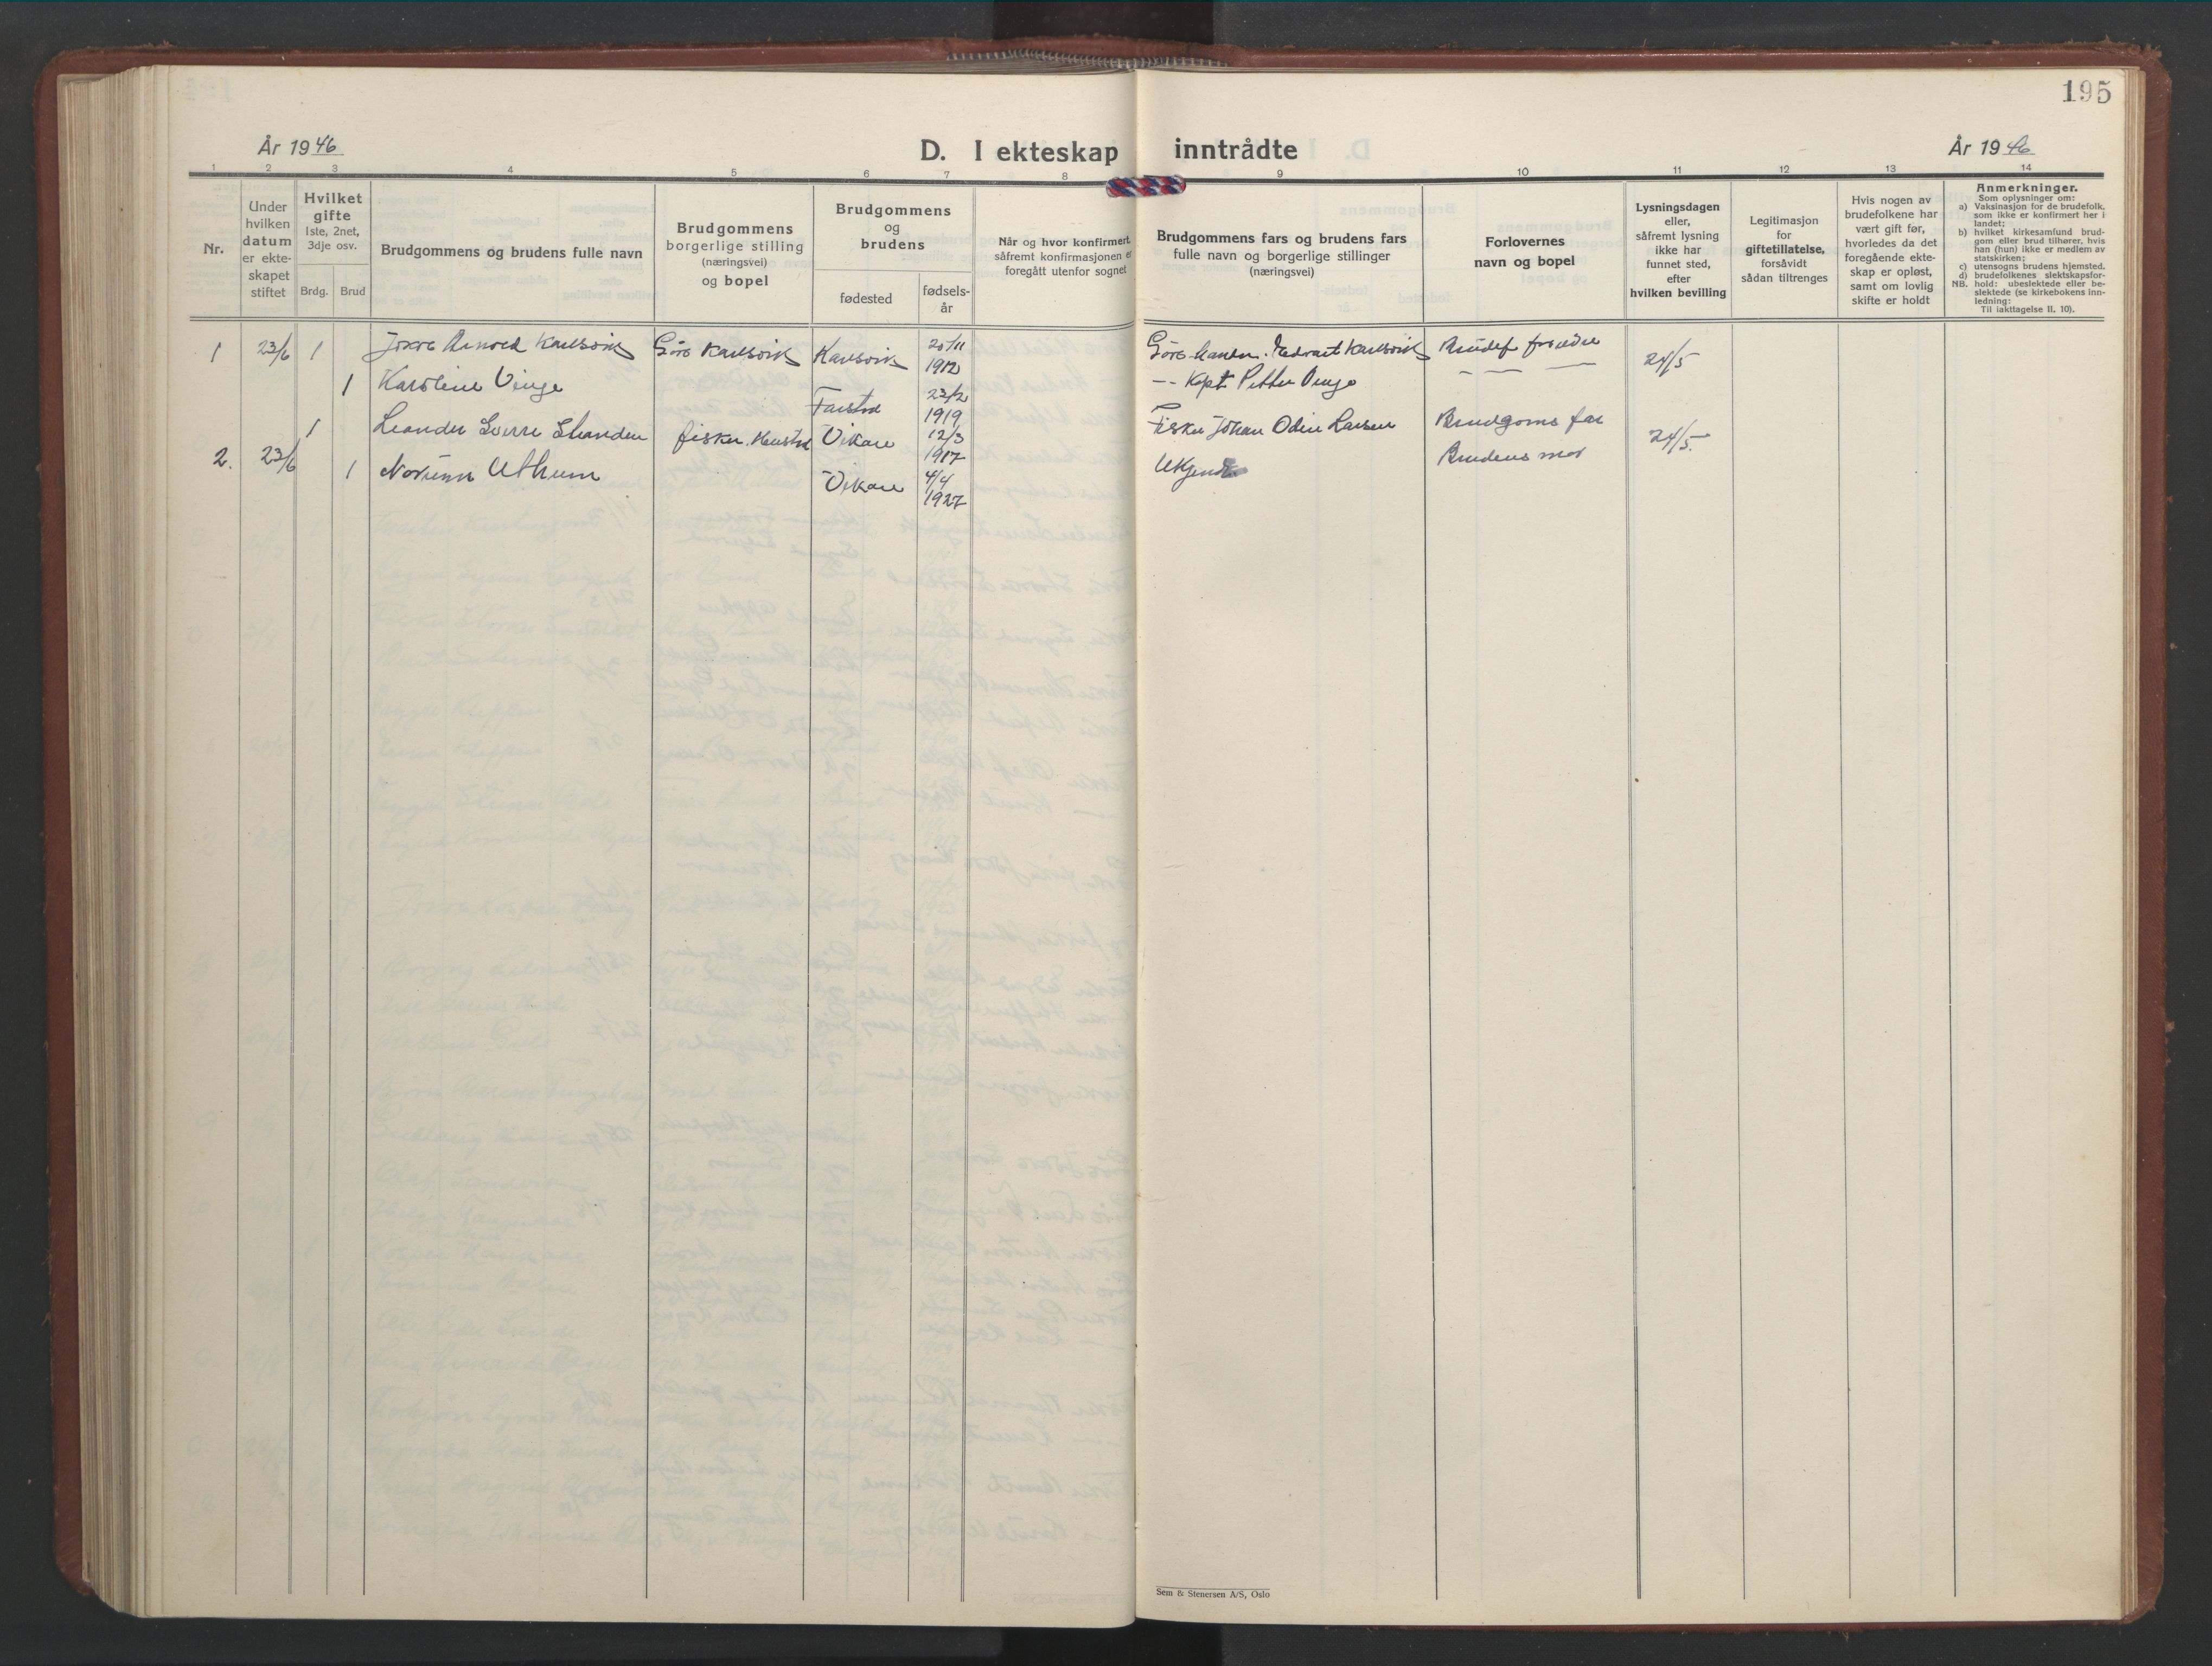 195
År 1946
D. I ekteskap inntrådte
År 1946
1 2 3 4 5 6 7 8 9 10 11 12 13 14
Nr.
Under
hvilken
datum
er ekte-
skapet
stiftet
Hvilket
gifte
1ste, 2net,
3dje osv.
Brdg. Brud
Brudgommens og brudens fulle navn
Brudgommens
borgerlige stilling
(næringsvei)
og bopel
Brudgommens
og
brudens
fødested
fødsels-
år
Når og hvor konfirmert,
såfremt konfirmasjonen er
foregått utenfor sognet
Brudgommens fars og brudens fars
fulle navn og borgerlige stillinger
(næringsvei)
Forlovernes
navn og bopel
Lysningsdagen
eller,
såfremt lysning
ikke har
funnet sted,
efter
hvilken bevilling
Legitimasjon
for
giftetillatelse,
forsåvidt
sådan tiltrenges
Hvis nogen av
brudefolkene har
vært gift før,
hvorledes da det
foregående ekte-
skap er opløst,
samt om lovlig
skifte er holdt
Anmerkninger.
Som oplysninger om:
a) Vaksinasjon for de brudefolk,
som ikke er konfirmert her i
landet;
b) hvilket kirkesamfund brud-
gom eller brud tilhører, hvis
han (hun) ikke er medlem av
statskirken;
c) utensogns brudens hjemsted.
d) brudefolkenes slektskapsfor-
NB. hold: ubeslektede eller be-
slektede (se kirkebokens inn-
ledning:
Til iakttagelse II. 10).
1 23/6 1 Karlsvik Karlsvik Karlsvik 20/11 1912 Karlsvik 24/5
1 Karoline Vinge Farstad 23/2 1919 Petter Vinge
1 Leander Sverre Stranden fisker Vikan 12/3 1917 Fisker Johan Odin Larsen Brudgoms far
2. 23/6 1 Vikan 4/4 1927 Ukjendt Brudens mor 24/5.
Sem & Stenersen A/S, Oslo